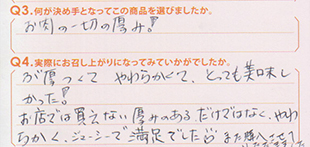 Q3.何が決め手となってこの商品を選びましたか。
お肉の一切の厚み!
Q4.実際にお召し上がりになってみていかがでしたか。
が厚つくて やわらかくて、とっても美味し
かった!
お店では買えない厚みのあるだけではなく、やわ
らかく、ジューシーで満足でした また購入させて